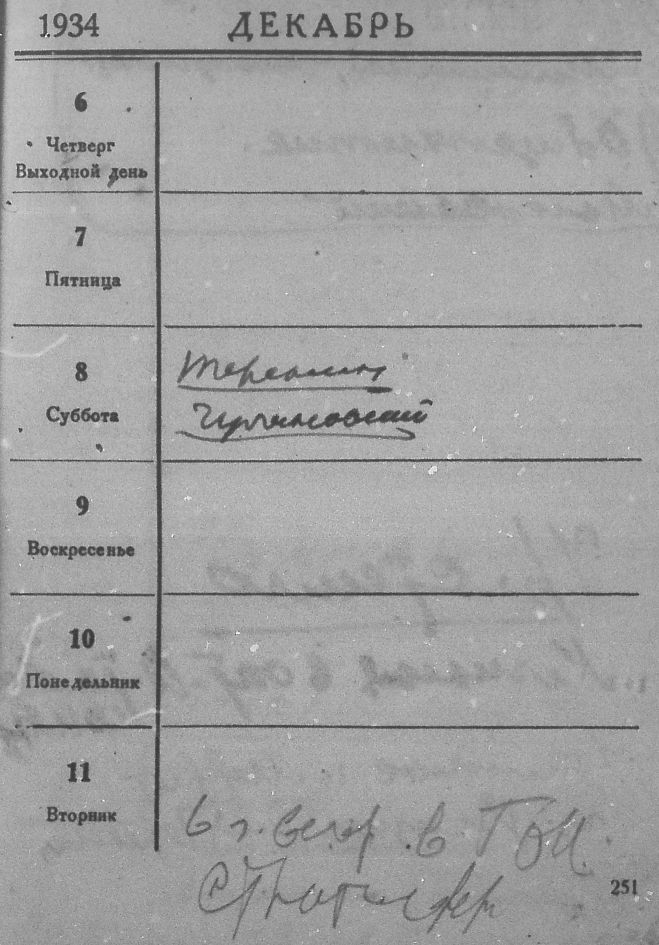 1934 ДЕКАБРЬ
6
Четверг
Выходной день
7
Пятница
8
Суббота
9
Воскресенье
10
Понедельник
11
Вторник
6 ч. веч. в
251